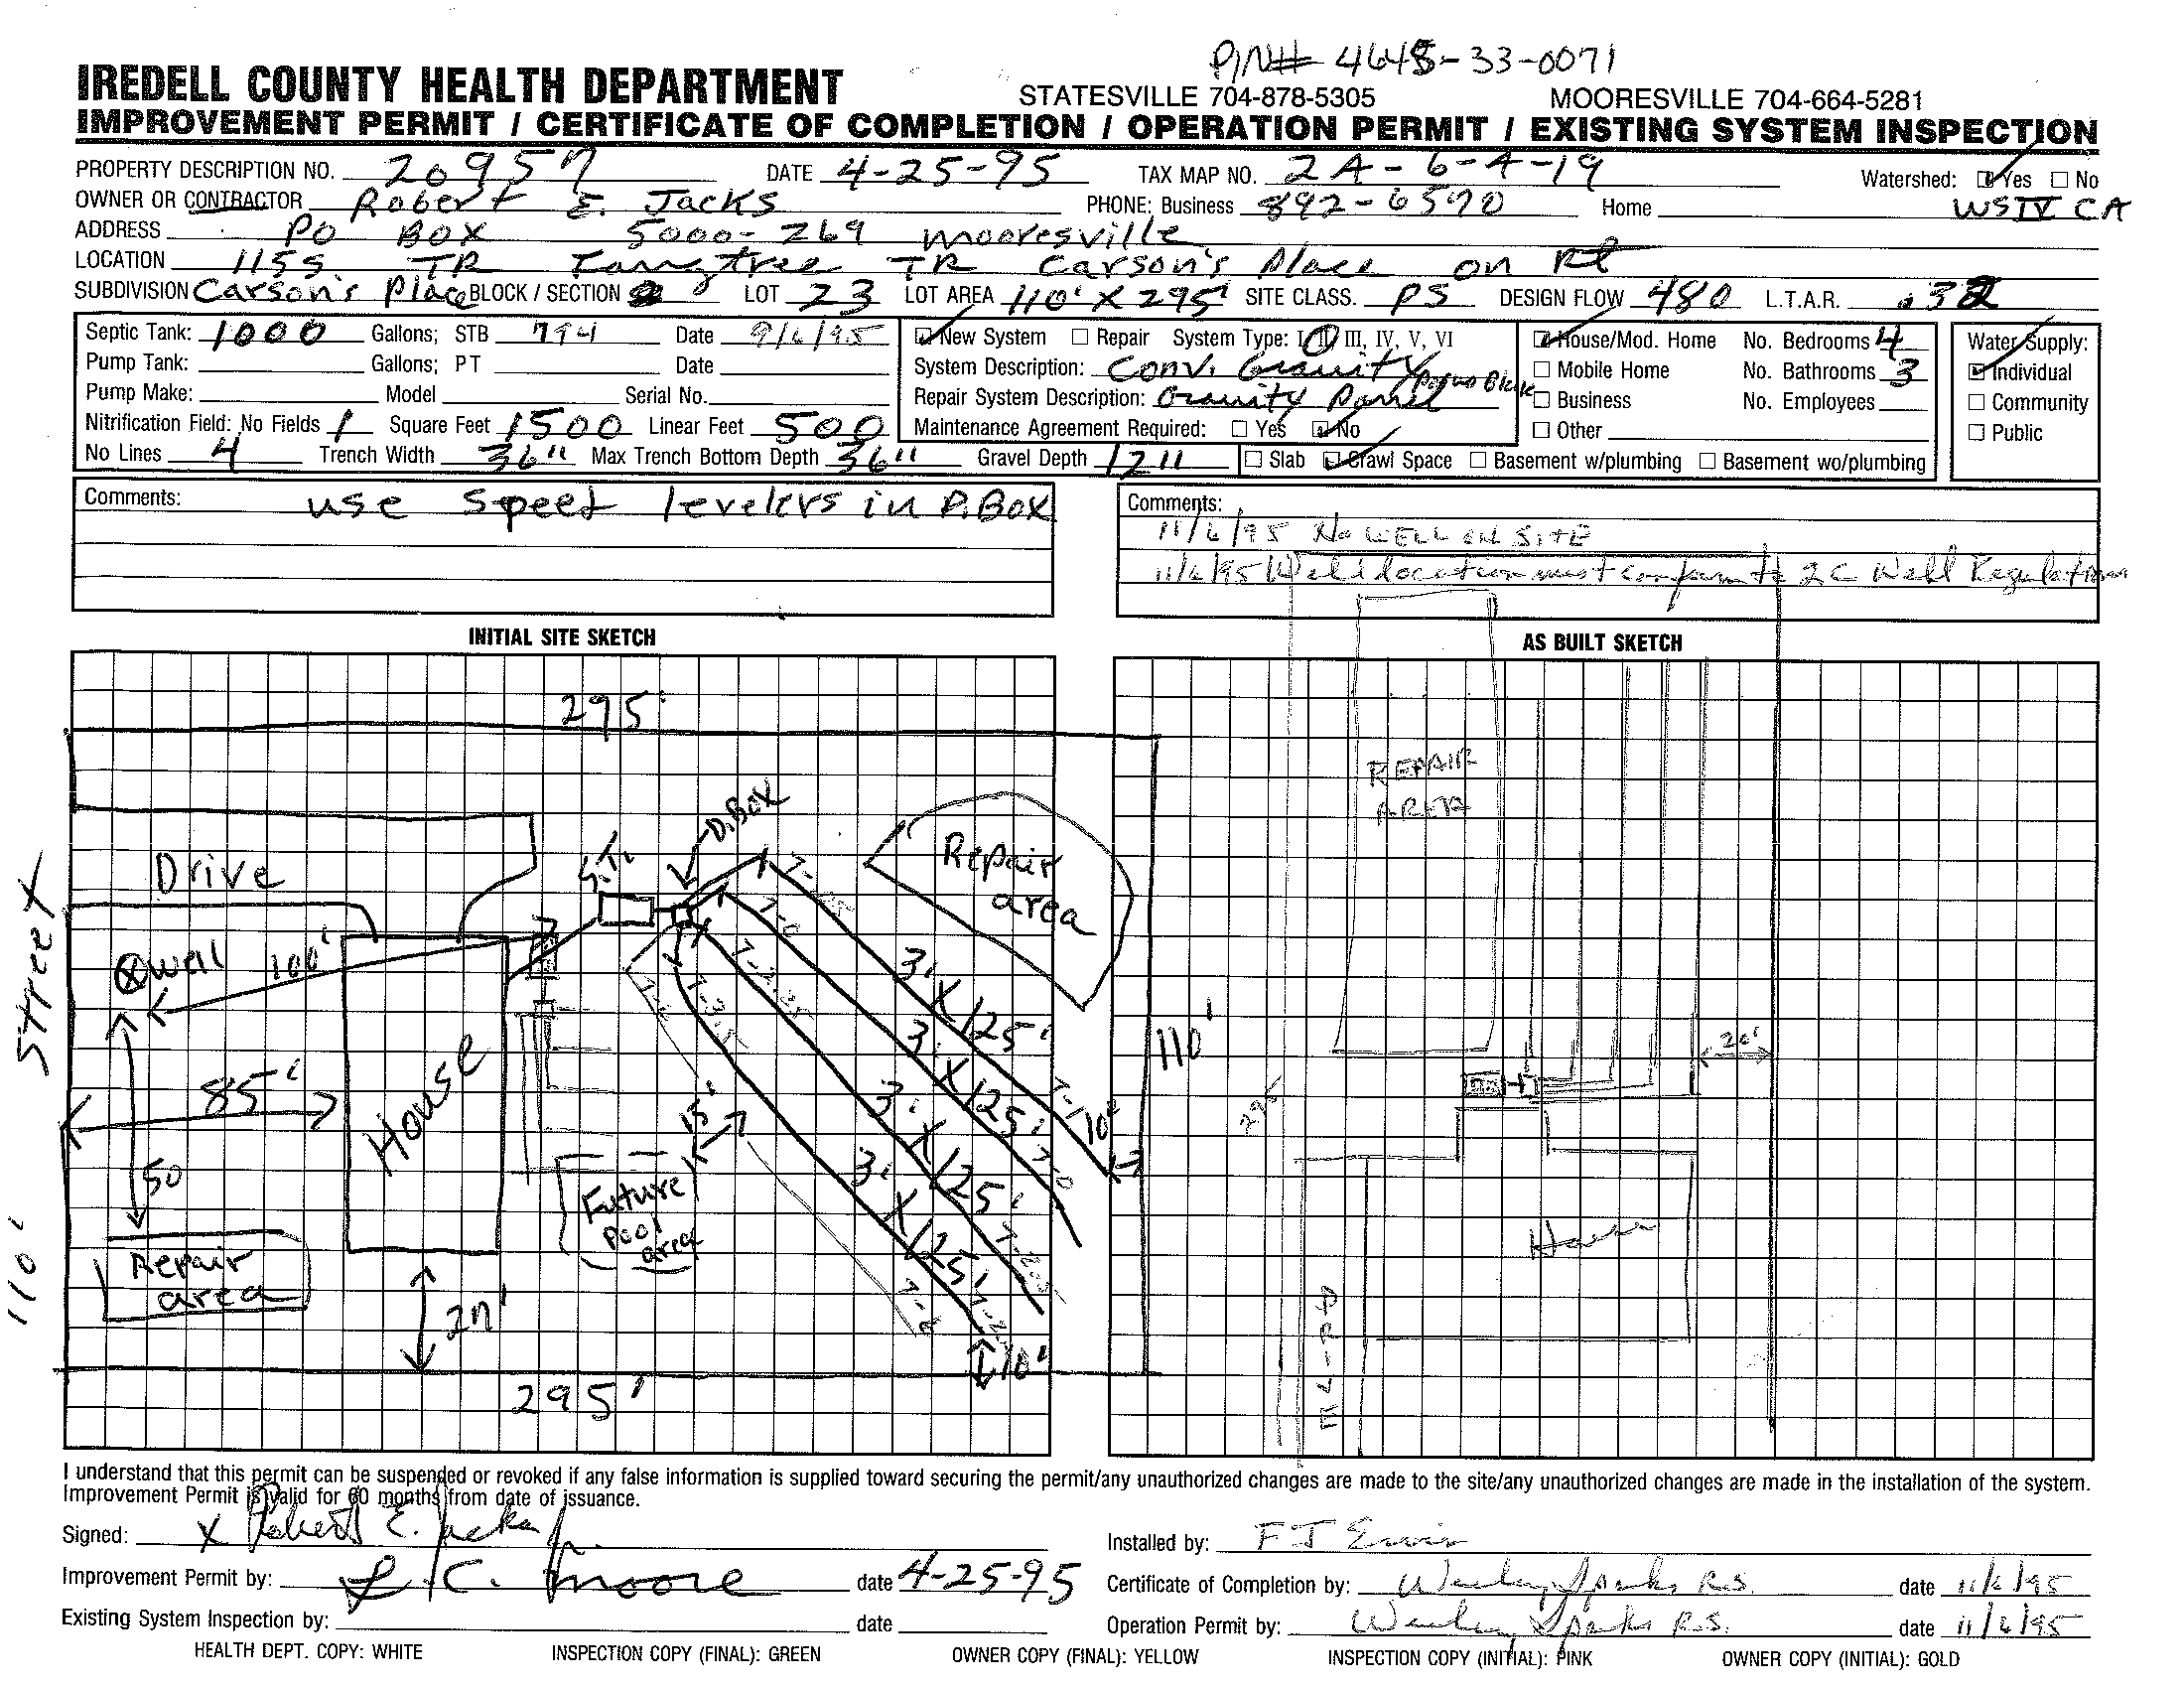 PIN# 4645-33-0071
IREDELL COUNTY HEALTH DEPARTMENT STATESVILLE 704-878-5305 MOORESVILLE 704-664-5281
IMPROVEMENT PERMIT / CERTIFICATE OF COMPLETION / OPERATION PERMIT / EXISTING SYSTEM INSPECTION
PROPERTY DESCRIPTION NO. 20957 DATE 4-25-95 TAX MAP NO. 2A-6-A-19 Watershed: Yes No
OWNER OR CONTRACTOR Robert E. Jacks PHONE: Business 892-6570 Home WS IV CA
ADDRESS PO BOX 5000-269 Mooresville
LOCATION 115S TR Langtree TR Carson's Place on Rt
SUBDIVISION Carson's Place BLOCK / SECTION LOT 23 LOT AREA 110' X 295' SITE CLASS. PS DESIGN FLOW 480 L.T.A.R. .32
Septic Tank: 1000 Gallons; STB 794 Date 9/6/95 New System Repair System Type: I, II, III, IV, V, VI House/Mod. Home No. Bedrooms 4 Water Supply:
Pump Tank: Gallons; PT Date System Description: Conv. Gravity Mobile Home No. Bathrooms 3 Individual
Pump Make: Model Serial No. Repair System Description: Gravity Panel Business No. Employees Community
Nitrification Field: No Fields 1 Square Feet 1500 Linear Feet 500 Maintenance Agreement Required: Yes No Other Public
No Lines 4 Trench Width 36" Max Trench Bottom Depth 36" Gravel Depth 12" Slab Crawl Space Basement w/plumbing Basement wo/plumbing
Comments: use speed levelers in D.BOX
Comments:
11/6/95 No WELL ON SITE
11/6/95 Well location must conform to 2C Well Regulations
INITIAL SITE SKETCH
AS BUILT SKETCH
295'
D.BOX
S.T.
Repair area
Drive
Street
Well
100'
85'
50
House
15'
Future Pool area
Repair area
20'
3' X 125'
3' X 125'
3' X 125'
3' X 125'
10'
10'
110'
110'
295'
REPAIR AREA
20'
House
I understand that this permit can be suspended or revoked if any false information is supplied toward securing the permit/any unauthorized changes are made to the site/any unauthorized changes are made in the installation of the system.
Improvement Permit is valid for 60 months from date of issuance.
Signed: X Robert E. Jacks Jr.
Installed by: F J Ervin
Improvement Permit by: L C. Moore date 4-25-95
Certificate of Completion by: Wesley Sparks R.S. date 11/6/95
Existing System Inspection by: date
Operation Permit by: Wesley Sparks R.S. date 11/6/95
HEALTH DEPT. COPY: WHITE INSPECTION COPY (FINAL): GREEN OWNER COPY (FINAL): YELLOW INSPECTION COPY (INITIAL): PINK OWNER COPY (INITIAL): GOLD